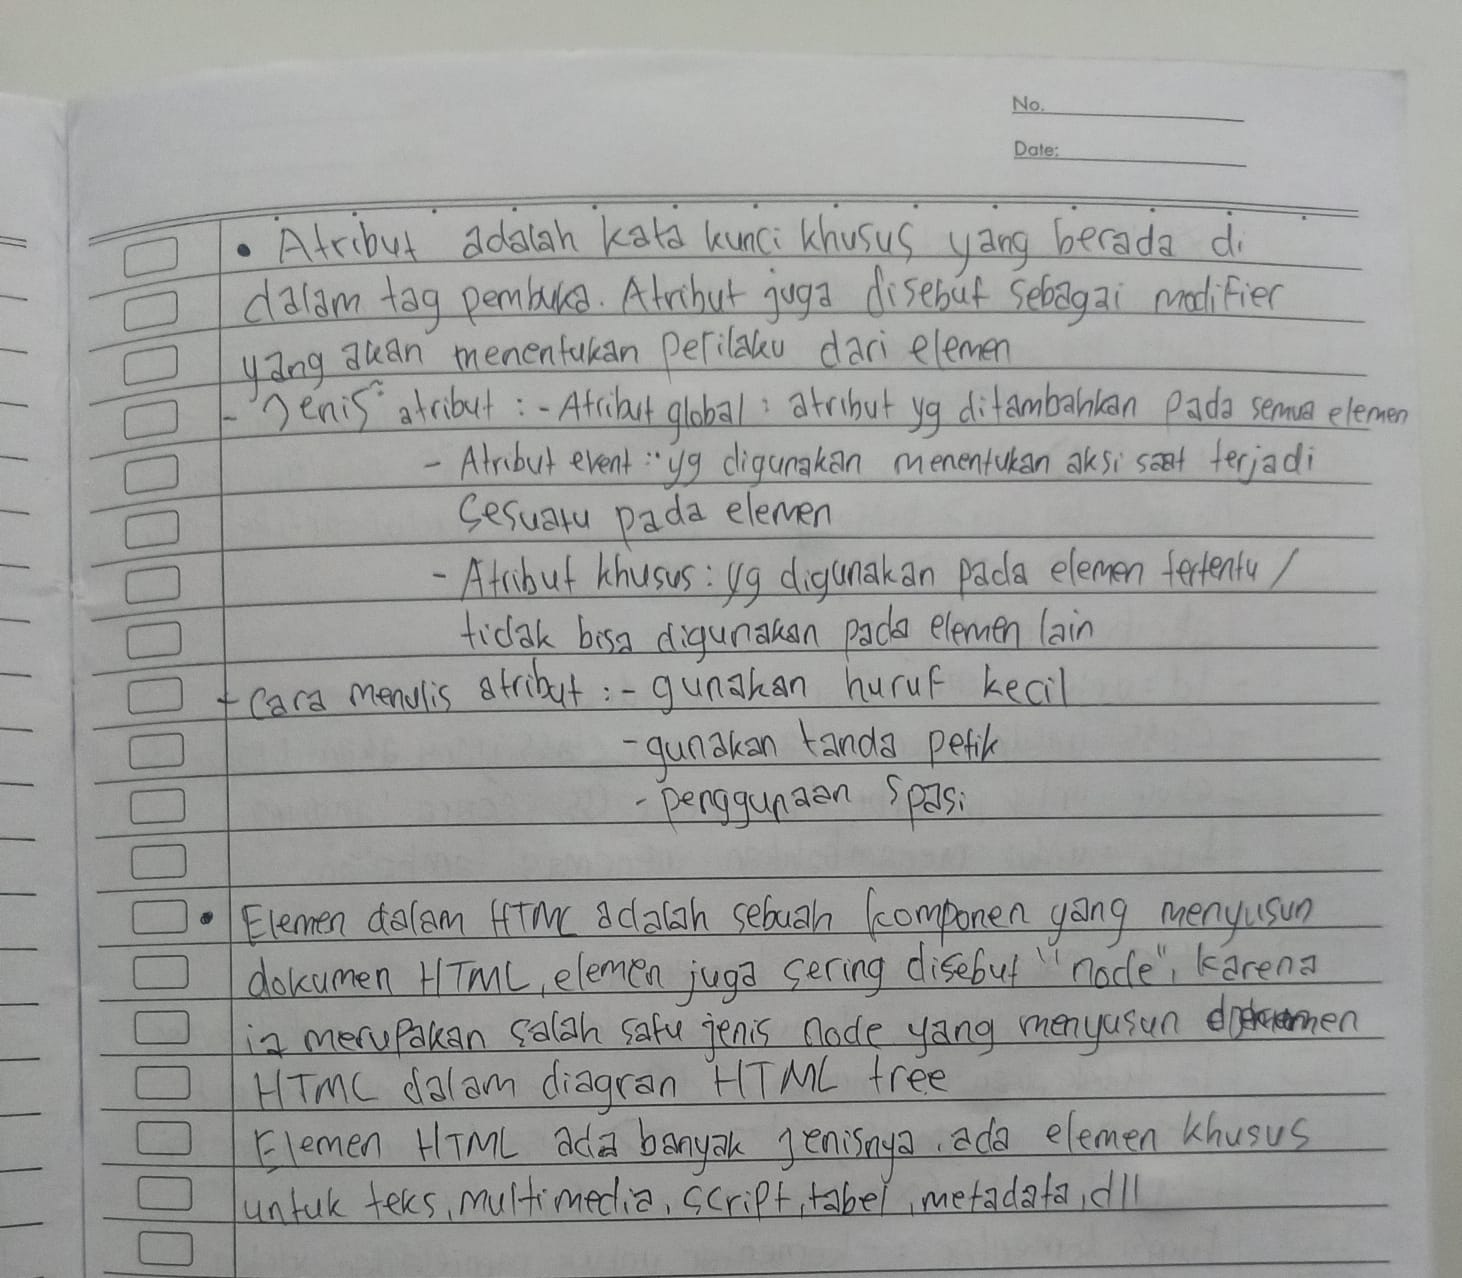 No.
Date:
• Atribut adalah kata kunci khusus yang berada di
dalam tag pembuka. Atribut juga disebut sebagai modifier
yang akan menentukan perilaku dari elemen
- Jenis² atribut : - Atribut global : atribut yg ditambahkan pada semua elemen
- Atribut event : " yg digunakan menentukan aksi saat terjadi
sesuatu pada elemen
- Atribut khusus : yg digunakan pada elemen tertentu /
tidak bisa digunakan pada elemen lain
+ Cara menulis atribut : - gunakan huruf kecil
- gunakan tanda petik
- penggunaan spasi
• Elemen dalam HTML adalah sebuah komponen yang menyusun
dokumen HTML, elemen juga sering disebut "node", karena
ia merupakan salah satu jenis node yang menyusun dokumen
HTML dalam diagran HTML tree
Elemen HTML ada banyak jenisnya, ada elemen khusus
untuk teks, multimedia, script, tabel, metadata, dll